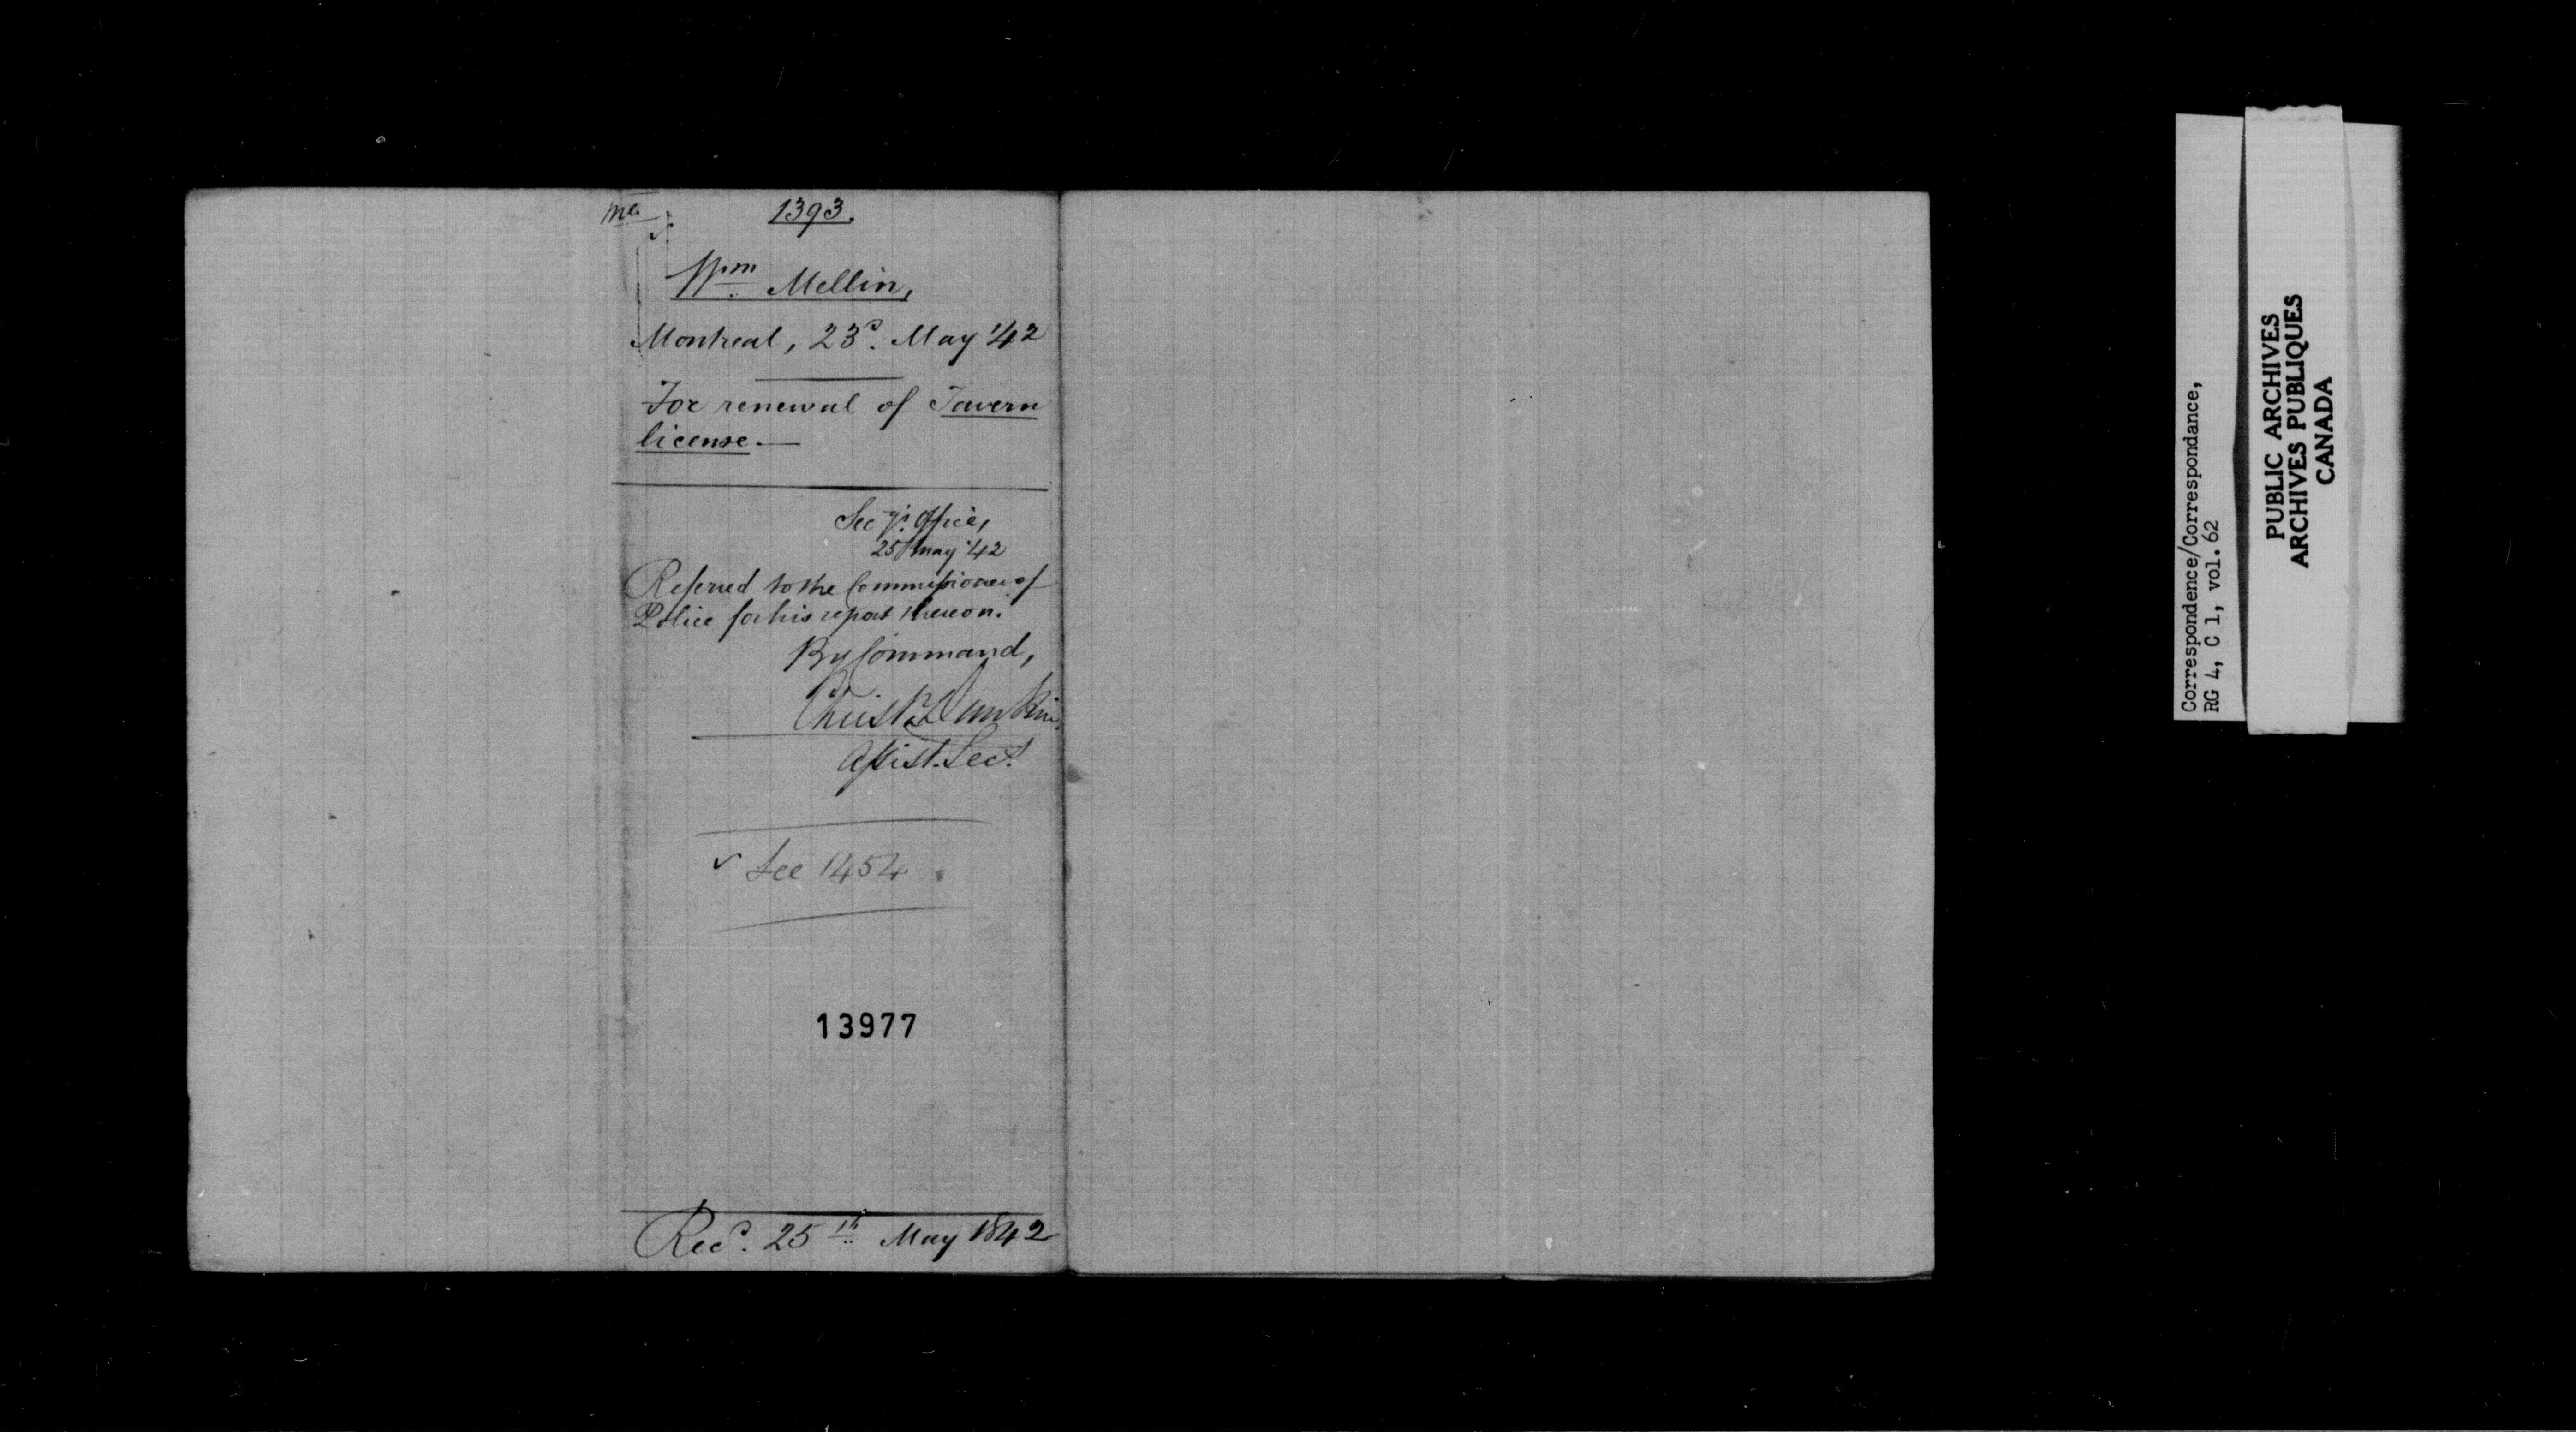 ma
1393.
Wm Mellin,
Montreal, 23d. May '42
For renewal of Tavern
license.—
Secy's. Office,
25 May '42
Referred to the Commissioner of
Police for his report thereon.
By Command,
Christr Dunkin
Assist. Secy.
✓ See 1454
13977
Recd. 25th May 1842
Correspondence/Correspondance,
RG 4, C 1, vol. 62
PUBLIC ARCHIVES
ARCHIVES PUBLIQUES
CANADA